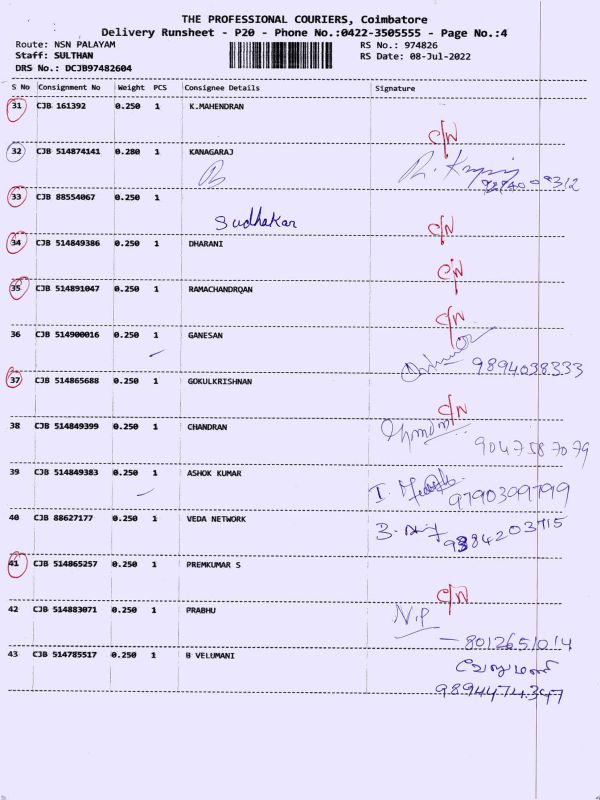 THE PROFESSIONAL COURIERS, Coimbatore
Delivery Runsheet - P20 - Phone No.:0422-3505555 - Page No.:4
Route: NSN PALAYAM RS No.: 974826
Staff: SULTHAN RS Date: 08-Jul-2022
DRS No.: DCJB97482604
S No Consignment No Weight PCS Consignee Details Signature
31 CJB 161392 0.250 1 K.MAHENDRAN
C/N
32 CJB 514874141 0.280 1 KANAGARAJ
9894009312
33 CJB 88554067 0.250 1
Sudhakar C/N
34 CJB 514849386 0.250 1 DHARANI
C/N
35 CJB 514891047 0.250 1 RAMACHANDRQAN
C/N
36 CJB 514900016 0.250 1 GANESAN
9894038333
37 CJB 514865688 0.250 1 GOKULKRISHNAN
C/N
38 CJB 514849399 0.250 1 CHANDRAN
9047587079
39 CJB 514849383 0.250 1 ASHOK KUMAR
9790309799
40 CJB 88627177 0.250 1 VEDA NETWORK
9384203715
41 CJB 514865257 0.250 1 PREMKUMAR S
C/N
42 CJB 514883071 0.250 1 PRABHU
N.P
8012651014
43 CJB 514785517 0.250 1 B VELUMANI
வேலுமணி
9894474347